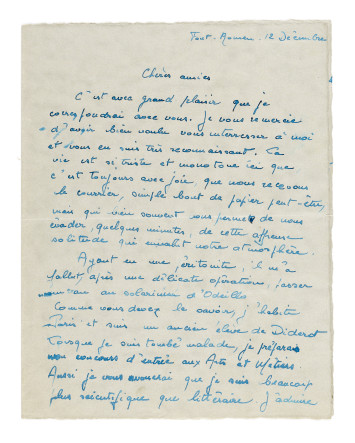 Font-Romeu, 12 Décembre
Chères amies
C'est avec grand plaisir que je
correspondrai avec vous. Je vous remercie
d'avoir bien voulu vous interresser à moi
et vous en suis très reconnaissant. La
vie est si triste et monotone ici que
c'est toujours avec joie, que nous recevons
le courrier, simple bout de papier peut-être,
mais qui bien souvent nous permet de nous
évader, quelques minutes, de cette affreuse
solitude qui envahit notre atmosphère.
Ayant eu une péritonite, il m'a
fallut, après une délicate opération, passer
au solarium d'Odeillo.
Comme vous devez le savoir, j'habite
Paris et suis un ancien élève de Diderot
Lorsque je suis tombé malade, je préparais
mon concours d'entrée aux Arts et Métiers.
Aussi je vous avouerai que je suis beaucoup
plus scientifique que littéraire. J'admire